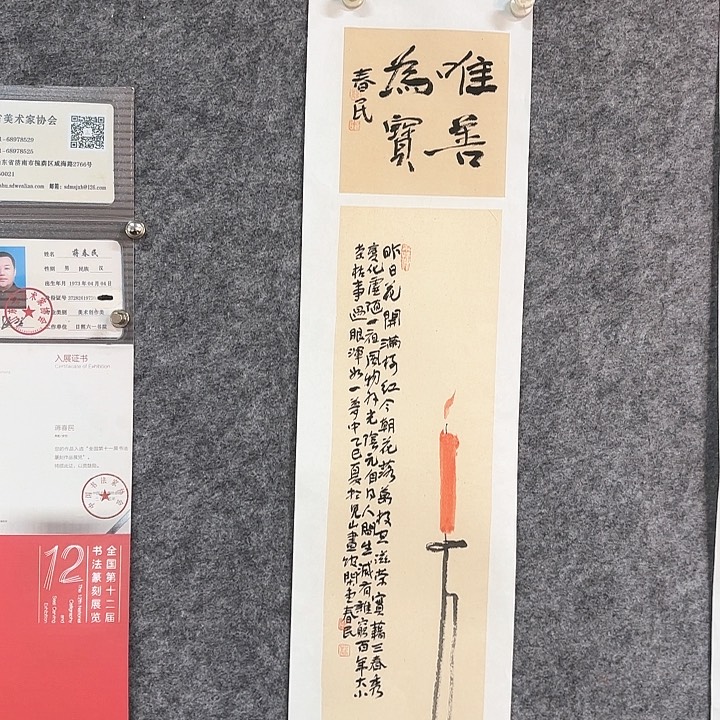 唯善
為寶
春民
昨日花開滿樹紅今朝花落萬枝空滋榮實藉三春秀
變化虛隨一夜風物外光陰元自得人間生滅有誰窮百年大小
榮枯事過眼渾如一夢中乙巳夏於見山畫館閑書春民
美术家协会
-68978529
-68978525
东省济南市槐荫区威海路2766号
0021
邮箱：sdmsjxh@126.com
姓名 蒋春民
性别 男 民族 汉
出生年月 1973年04月04日
美术创作类
工作单位 日照六一书院
入展证书
Certificate of Exhibition
全国第十二届
书法篆刻展览
12
The 12th National
Calligraphy
and
Seal Carving
Exhibition